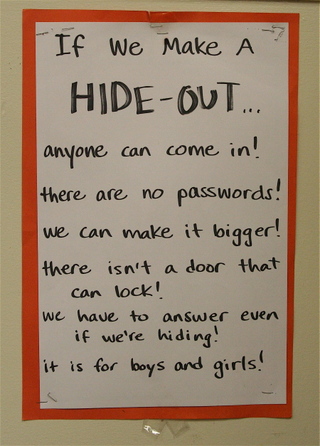 If We Make A
HIDE-OUT...
anyone can come in!
there are no passwords!
we can make it bigger!
there isn't a door that
can lock!
we have to answer even
if we're hiding!
it is for boys and girls!